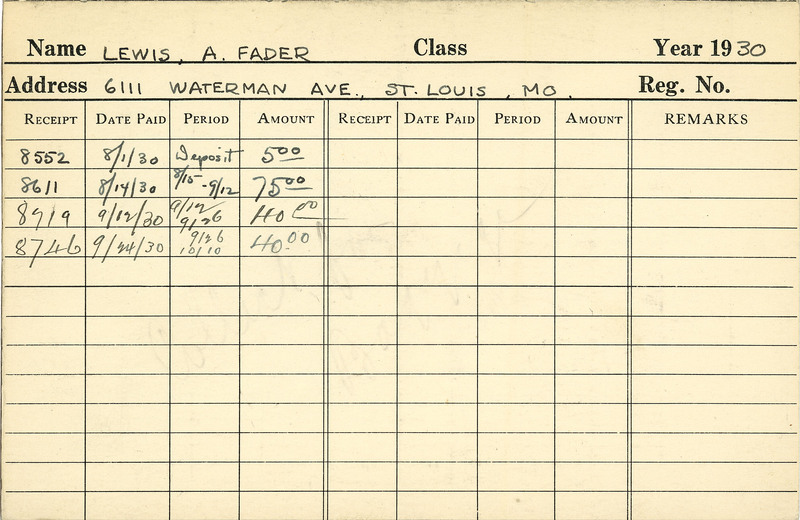 Name LEWIS, A. FADER Class Year 1930
Address 6111 WATERMAN AVE., ST. LOUIS, MO. Reg. No.
RECEIPT DATE PAID PERIOD AMOUNT RECEIPT DATE PAID PERIOD AMOUNT REMARKS
8552 8/1/30 Deposit 5.00
8611 8/14/30 8/15-9/12 75.00
8719 9/12/30 9/12 9/26 40.00
8746 9/24/30 9/26 10/10 40.00